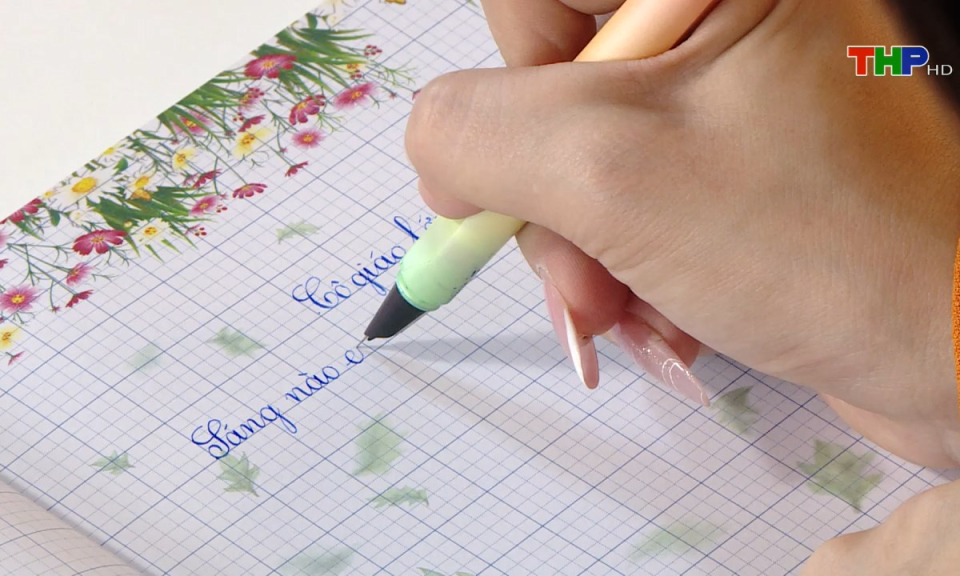 THP HD
Cô giáo
Sáng nào e